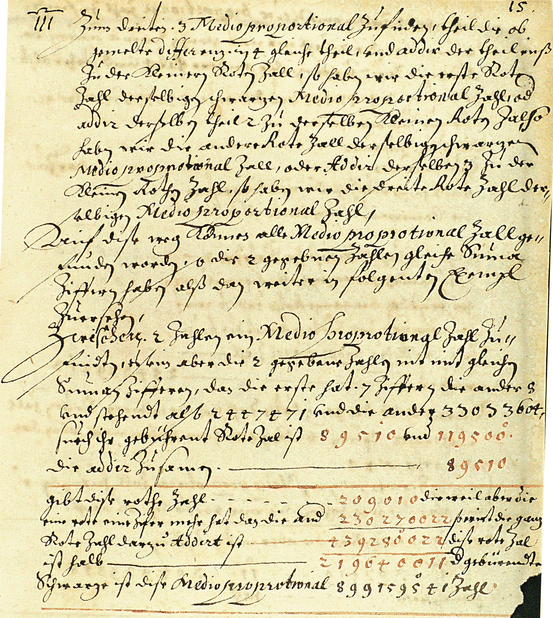 15.
III Zum driten. 3 Medio proportional Zufinden, theil die ob
gemelte differenz in 4 gleiche theil, und addir der theil einß
Zu der kleinern Roten Zall, so haben wir die erste Rote
Zahl derselbigen schwarzen Medio proportional Zahl, od
addir derselben theil 2 Zu derselben kleinen Roten Zal so
haben wir die andere Rote Zall derselbig schwarzen
Medio proportional Zall, oder Addir derselben 3 Zu der
kleinen Rothen Zahl, so haben wir die dreite Rote Zahl der
selbigen Medio proportional Zahl,
Auf dise weg können alle Medio proportional Zall ge=
funden werden, so die 2 gegebnen Zahlen gleiche Suma
Ziffern haben alß dan weiter in folgenten Exempl
Zuersehen,
Zwischen 2 Zahlen ein Medio proportional Zahl Zu=
finden, so aber die 2 gegebene Zahlen nit mit gleichen
Suman Zifferen, das die erste hat 7 Ziffern die ander 8
und stehendt alß 2447471 und die ander 33053604,
gebührent Rote Zal ist 89510 und 119500.
die addir Zusamen. 89510
gibt dise rothe Zahl 209010 dieweil aber die
eine rote eine Zifer mehr hat das die and 230270022 so wirt die ganz
Rote Zahl darzu Addirt ist 439280022 dise rote Zal
ist halb 219640011 d gebürendte
Schwarze ist dise Medio proportional 899159541 Zahl